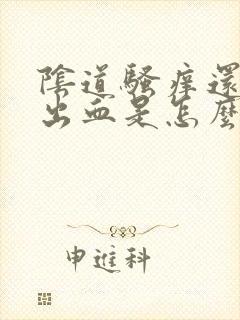 陰道騷痒還
出血是怎麼
申進科